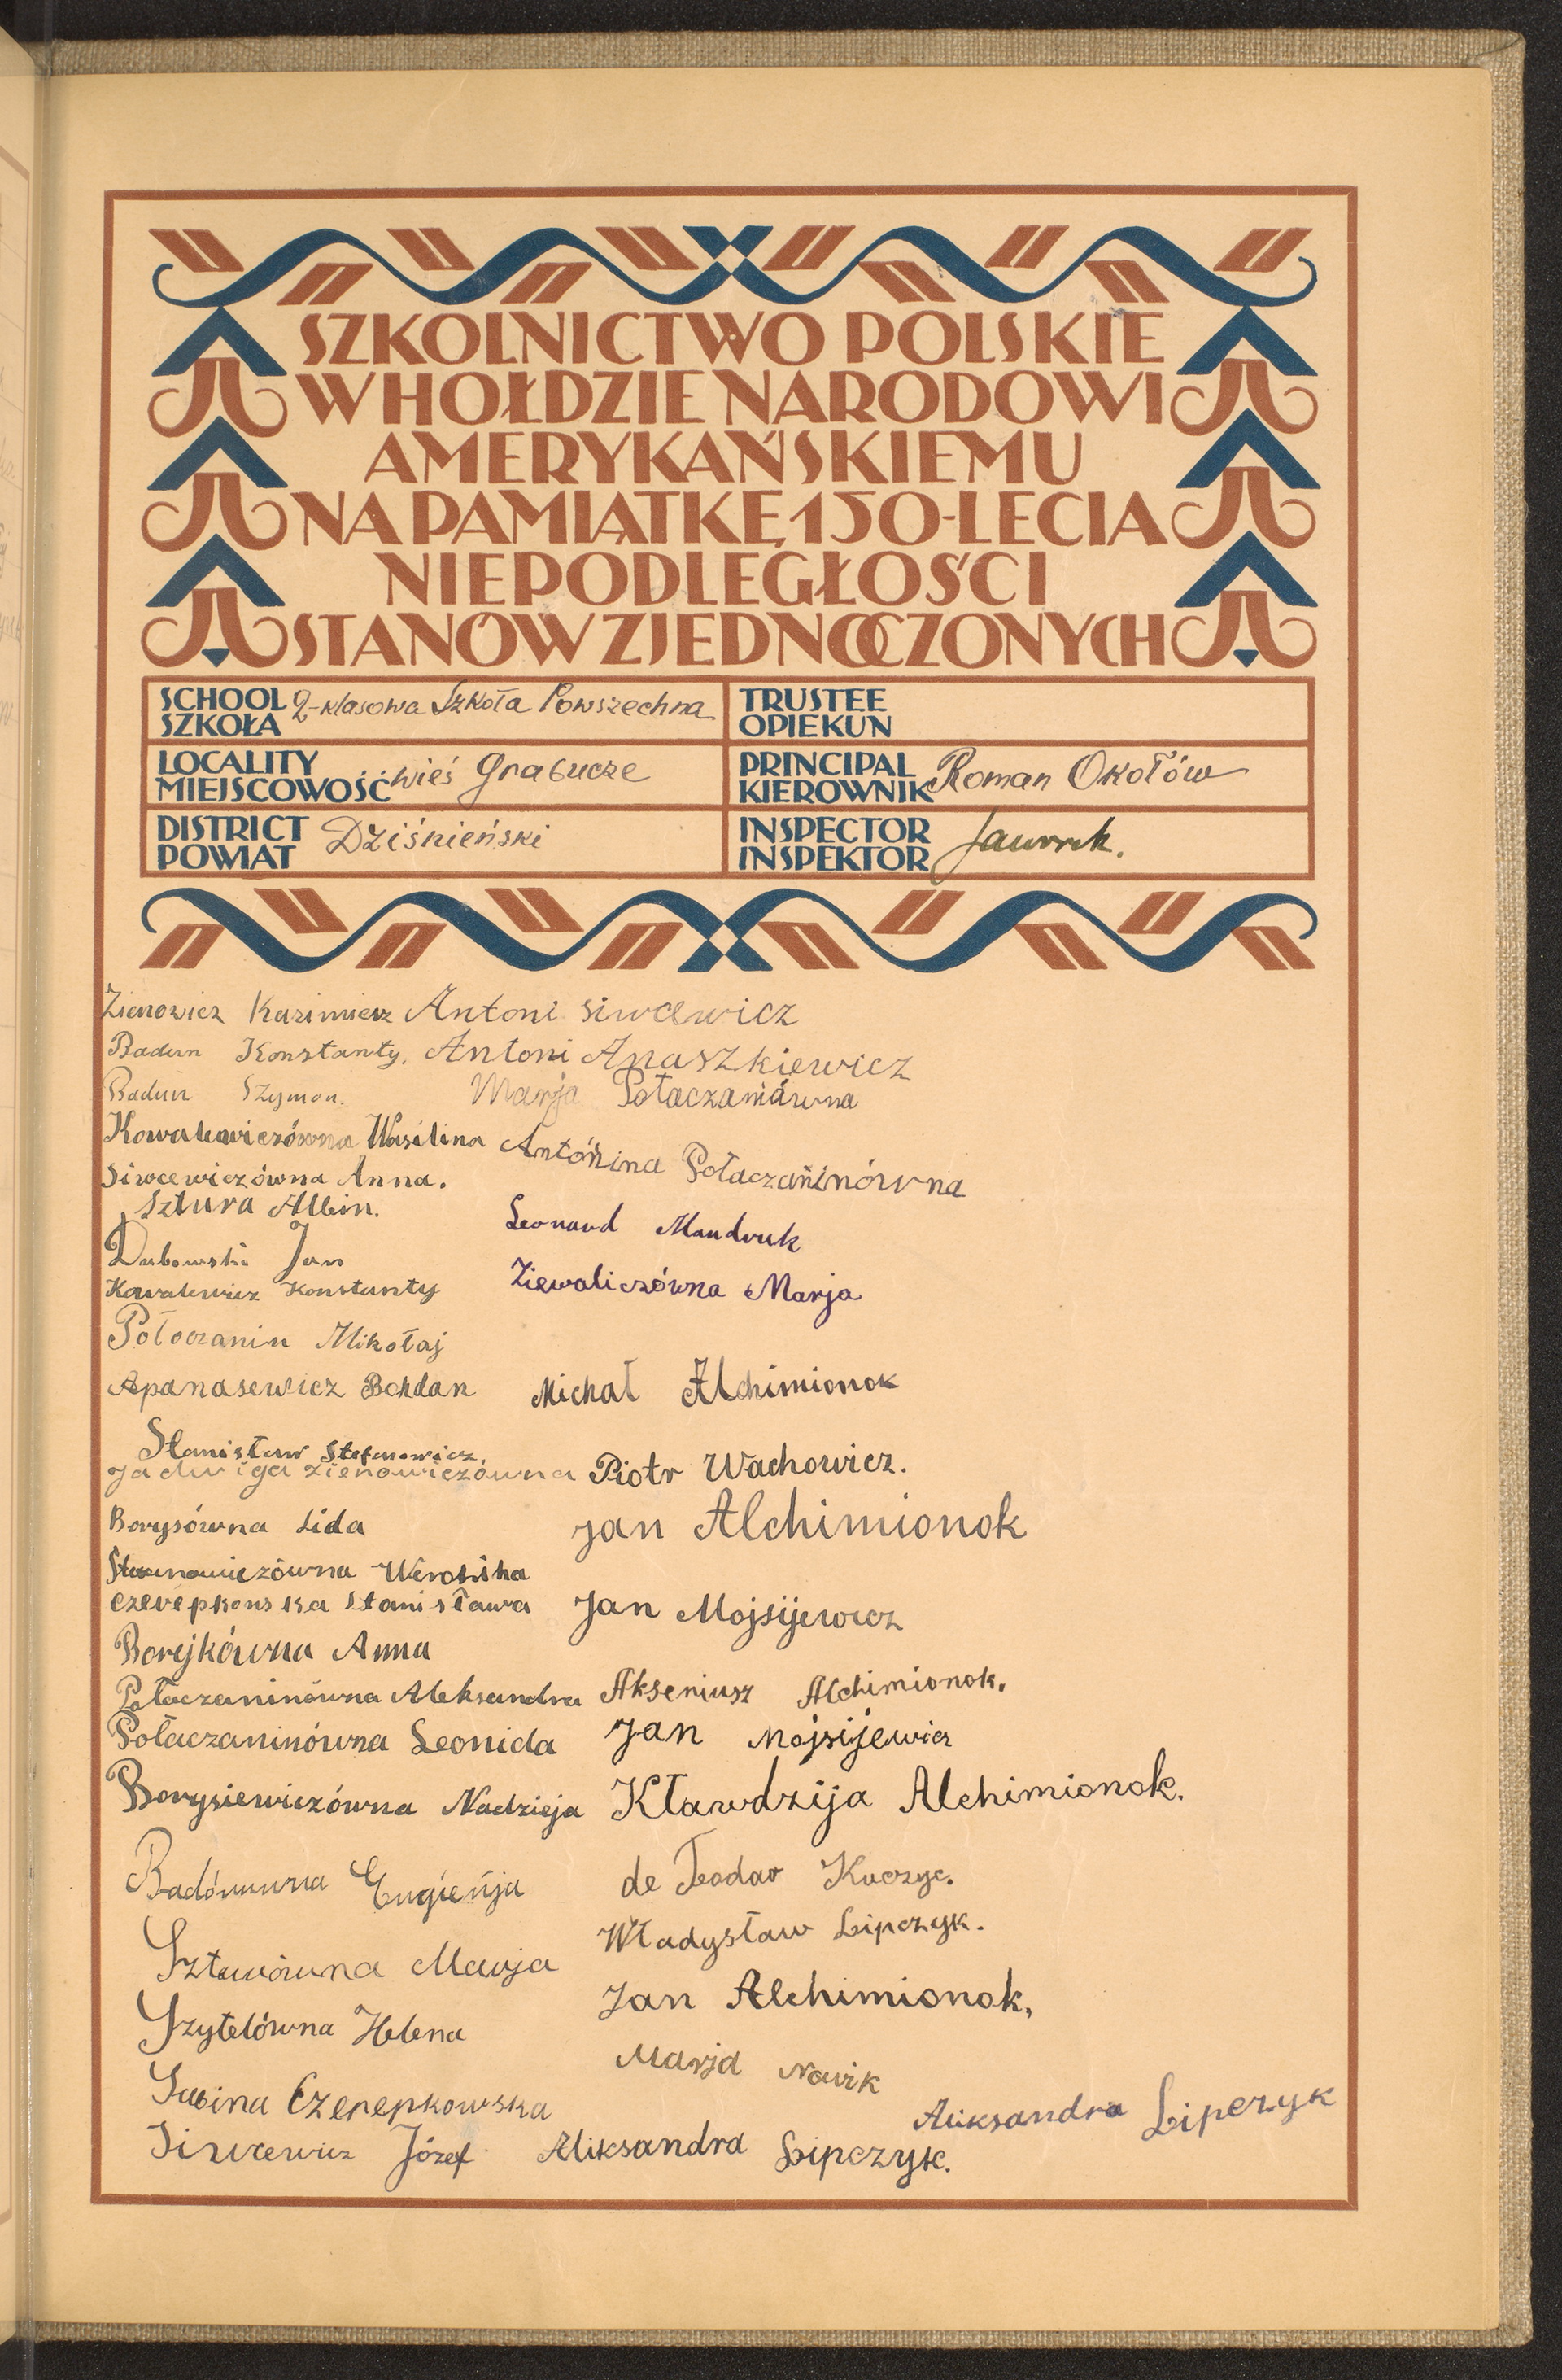 SZKOLNICTWO POLSKIE
W HOŁDZIE NARODOWI
AMERYKAŃSKIEMU
NA PAMIĄTKĘ 150-LECIA
NIEPODLEGŁOŚCI
STANÓW ZJEDNOCZONYCH
SCHOOL SZKOŁA 2-klasowa Szkoła Powszechna
TRUSTEE OPIEKUN
LOCALITY MIEJSCOWOŚĆ wieś Grabucze
PRINCIPAL KIEROWNIK Roman Okołów
DISTRICT POWIAT Dziśnieński
INSPECTOR INSPEKTOR
Zienowicz Kazimierz
Badun Konstanty.
Badun Szymon.
Kowalewiczówna Wasilina
Siwcewiczówna Anna.
Sztura Albin.
Dubowski Jan
Kowalewicz Konstanty
Połoczanin Mikołaj
Apanasewicz Bohdan
Stanisław Stefanowicz.
Jadwiga zienowiczówna
Borysówna Lida
Weronika
czerepkowska Stanisława
Borejkówna Anna
Połaczaninówna Aleksandra
Połaczaninówna Leonida
Borysiewiczówna Nadzieja
Badónuwna Eugieńja
Szturówna Marja
Szytelówna Helena
Sabina Czerepkowska
Siwcewicz Józef
Antoni siwcewicz
Antoni Apaszkiewicz
Marja Połaczaniówna
Antónina Połaczańinówna
Leonard Mandruk
Ziewaliczówna Marja
Michał Alchimionok
Piotr Wachowicz.
Jan Alchimionok
Jan Mojsijewicz
Akseniusz Alchimionok.
Jan Mojsijewicz
Kławdzija Alchimionok.
de Teodor Kuczyc.
Władysław Lipczyk.
Jan Alchimionok,
Marja Nowik
Aliksandra Lipczyk
Aliksandra Lipczyk.